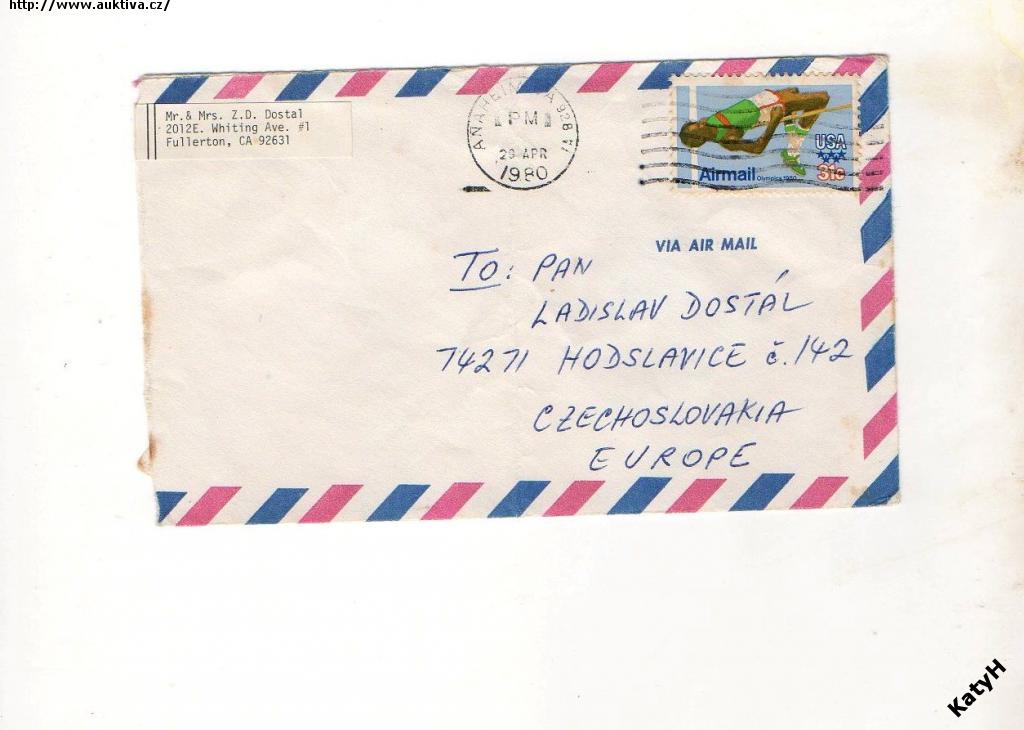 http://www.auktiva.cz/
Mr.& Mrs. Z.D. Dostal
2012E. Whiting Ave. #1
Fullerton, CA 92631
ANAHEIM CA 928
PM
29 APR
1980
USA
31c
Airmail Olympics 1980
VIA AIR MAIL
TO: PAN
LADISLAV DOSTÁL
74271 HODSLAVICE č. 142
CZECHOSLOVAKIA
EUROPE
KatyH